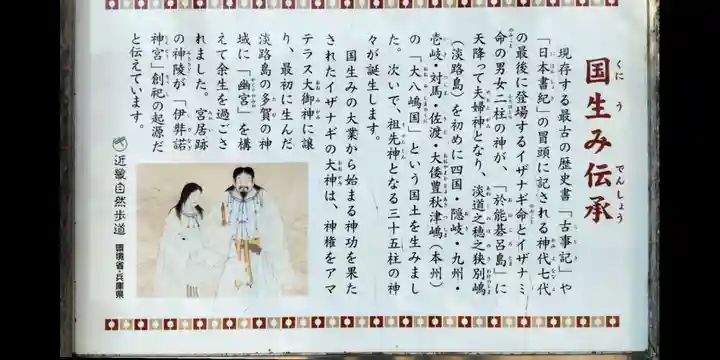 国生み伝承
現存する最古の歴史書「古事記」や
「日本書紀」の冒頭に記される神代七代
の最後に登場するイザナギ命とイザナミ
命の男女二柱の神が、「於能碁呂島」に
天降って夫婦神となり、淡道之穂之狭別嶋
(淡路島)を初めに四国・隠岐・九州・
壱岐・対馬・佐渡・大倭豊秋津嶋(本州)
の「大八嶋国」という国土を生みまし
た。次いで、祖先神となる三十五柱の神
々が誕生します。
国生みの大業から始まる神功を果た
されたイザナギの大神は、神権をアマ
テラス大御神に譲
り、最初に生んだ
淡路島の多賀の神
域に「幽宮」を構
えて余生を過ごさ
れました。宮居跡
の神陵が「伊弉諾
神宮」創祀の起源だ
と伝えています。
近畿自然歩道
環境省・兵庫県